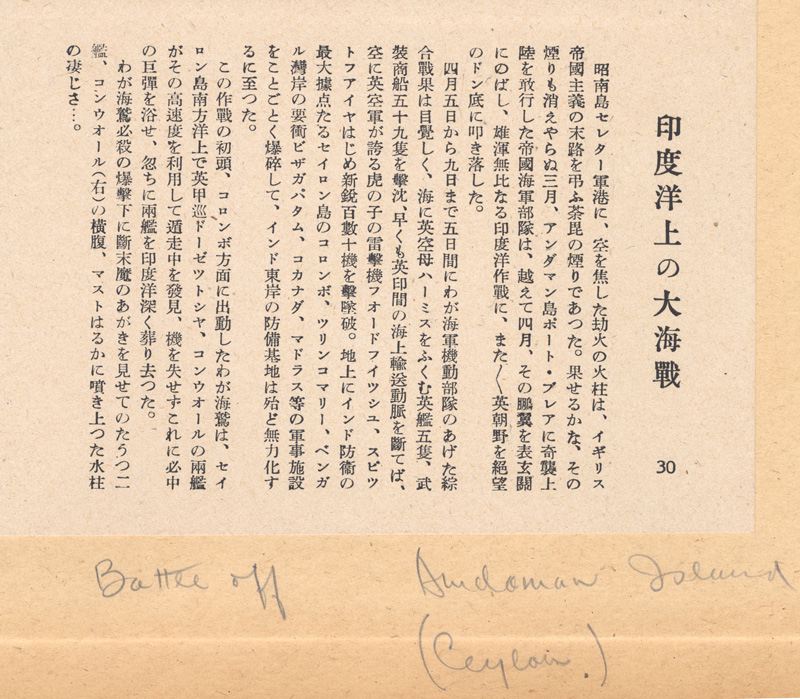 印度洋上の大海戰
30
昭南島セレター軍港に、空を焦した劫火の火柱は、イギリス
帝國主義の末路を弔ふ荼毘の煙りであつた。果せるかな、その
煙りも消えやらぬ三月、アンダマン島ポート・ブレアに奇襲上
陸を敢行した帝國海軍部隊は、越えて四月、その鵬翼を表玄關
にのばし、雄渾無比なる印度洋作戰に、また〱英朝野を絶望
のドン底に叩き落した。
四月五日から九日まで五日間にわが海軍機動部隊のあげた綜
合戰果は目覺しく、海に英空母ハーミスをふくむ英艦五隻、武
裝商船五十九隻を擊沈、早くも英印間の海上輸送動脈を斷てば、
空に英空軍が誇る虎の子の雷擊機フオードフイツシユ、スピツ
トフアイヤはじめ新銳百數十機を擊墜破。地上にインド防衞の
最大據点たるセイロン島のコロンボ、ツリンコマリー、ベンガ
ル灣岸の要衝ビザガパタム、コカナダ、マドラス等の軍事施設
をことごとく爆碎して、インド東岸の防備基地は殆ど無力化す
るに至つた。
この作戰の初頭、コロンボ方面に出動したわが海鷲は、セイ
ロン島南方洋上で英甲巡ドーゼツトシヤ、コンウオールの兩艦
がその高速度を利用して遁走中を發見、機を失せずこれに必中
の巨彈を浴せ、忽ちに兩艦を印度洋深く葬り去つた。
わが海鷲必殺の爆擊下に斷末魔のあがきを見せてのたうつ二
艦、コンウオール(右)の横腹、マストはるかに噴き上つた水柱
の凄じさ…。
Battle off Andoman Island
(Ceylon.)